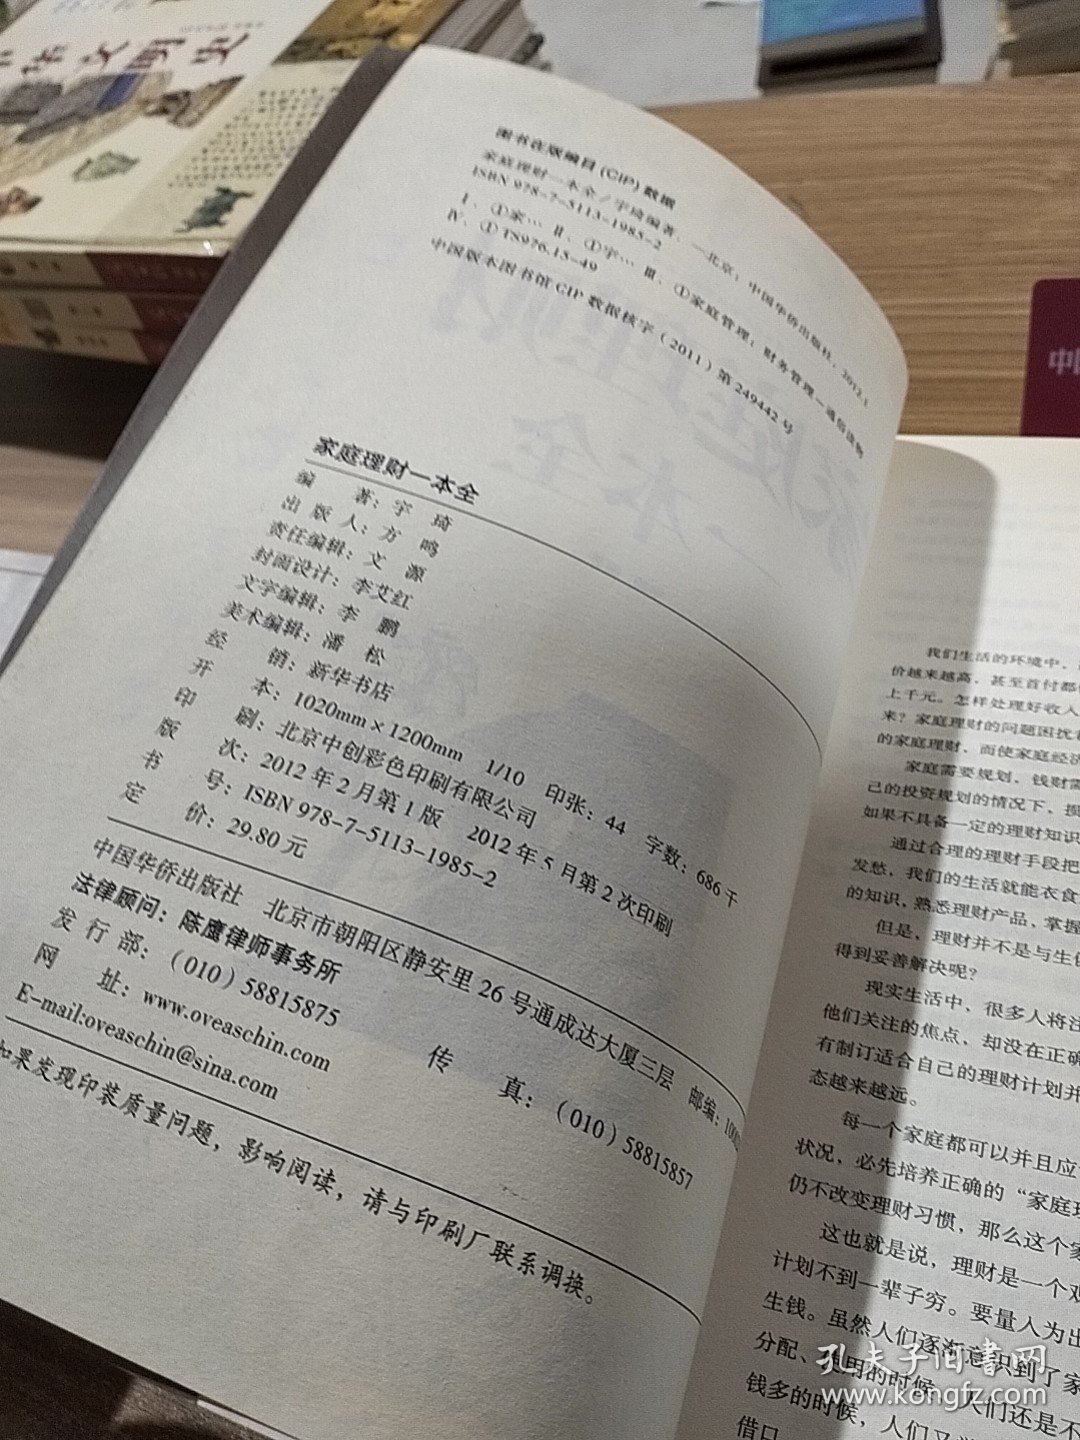 图书在版编目(CIP)数据
家庭理财一本全/宇琦编著.—北京:中国华侨出版社,2012.1
ISBN 978-7-5113-1985-2
Ⅰ、①家… Ⅱ、①宇… Ⅲ、①家庭管理:财务管理-通俗读物
Ⅳ、①TS976.15-49
中国版本图书馆CIP数据核字(2011)第249442号
家庭理财一本全
编 著:宇 琦
出 版 人:方 鸣
责任编辑:文 源
封面设计:李艾红
文字编辑:李 鹏
美术编辑:潘 松
经 销:新华书店
开 本:1020mm×1200mm 1/10 印张:44 字数:686千
印 刷:北京中创彩色印刷有限公司
版 次:2012年2月第1版 2012年5月第2次印刷
书 号:ISBN 978-7-5113-1985-2
定 价:29.80元
中国华侨出版社 北京市朝阳区静安里26号通成达大厦三层 邮编:1000
法律顾问:陈鹰律师事务所
发 行 部:(010)58815875 传 真:(010)58815857
网 址:www.oveaschin.com
E-mail:oveaschin@sina.com
如果发现印装质量问题,影响阅读,请与印刷厂联系调换。
我们生活的环境中,
价越来越高,甚至首付都
上千元。怎样处理好收人
来?家庭理财的问题困扰
的家庭理财,而使家庭经济
家庭需要规划,钱财需
己的投资规划的情况下,损
如果不具备一定的理财知识
通过合理的理财手段把
发愁,我们的生活就能衣食
的知识,熟悉理财产品,掌握
但是,理财并不是与生
得到妥善解决呢?
现实生活中,很多人将注
他们关注的焦点,却没在正确
有制订适合自己的理财计划并
态越来越远。
每一个家庭都可以并且应
状况,必先培养正确的“家庭理
仍不改变理财习惯,那么这个家
这也就是说,理财是一个观
计划不到一辈子穷。要量人为出
生钱。虽然人们逐渐意识到了家
分配、使用的时候,人们还是不
钱多的时候,人们又
借口
孔夫子旧书网
www.kongfz.com